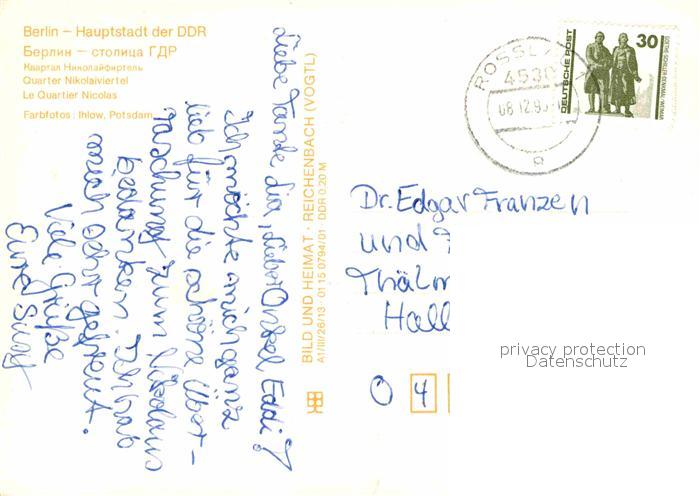 Berlin – Hauptstadt der DDR
Берлин – столица ГДР
Квартал Николайфиртель
Quarter Nikolaiviertel
Le Quartier Nicolas
Farbfotos: Ihlow, Potsdam
Liebe Tante Lia, lieber Onkel Eddi!
Ich möchte mich ganz
lieb für die schöne Über-
raschung zum Nikolaus
bedanken. Ich hab
mich sehr gefreut.
Viele Grüße
Eure
BILD UND HEIMAT · REICHENBACH (VOGTL)
A1/III/26/13 · 01 15 0794/01 DDR 0,20 M
ROSSL
4530
08.12.90
a
DEUTSCHE POST
30
GOETHE-SCHILLER-DENKMAL WEIMAR
Dr. Edgar Franzen
und
Thälm
Hall
O 4
privacy protection
Datenschutz